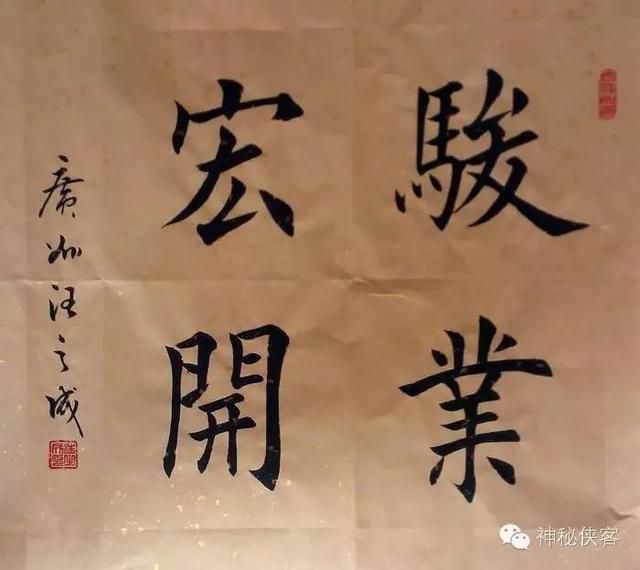 駿業
宏開
廣州汪之成
神秘侠客